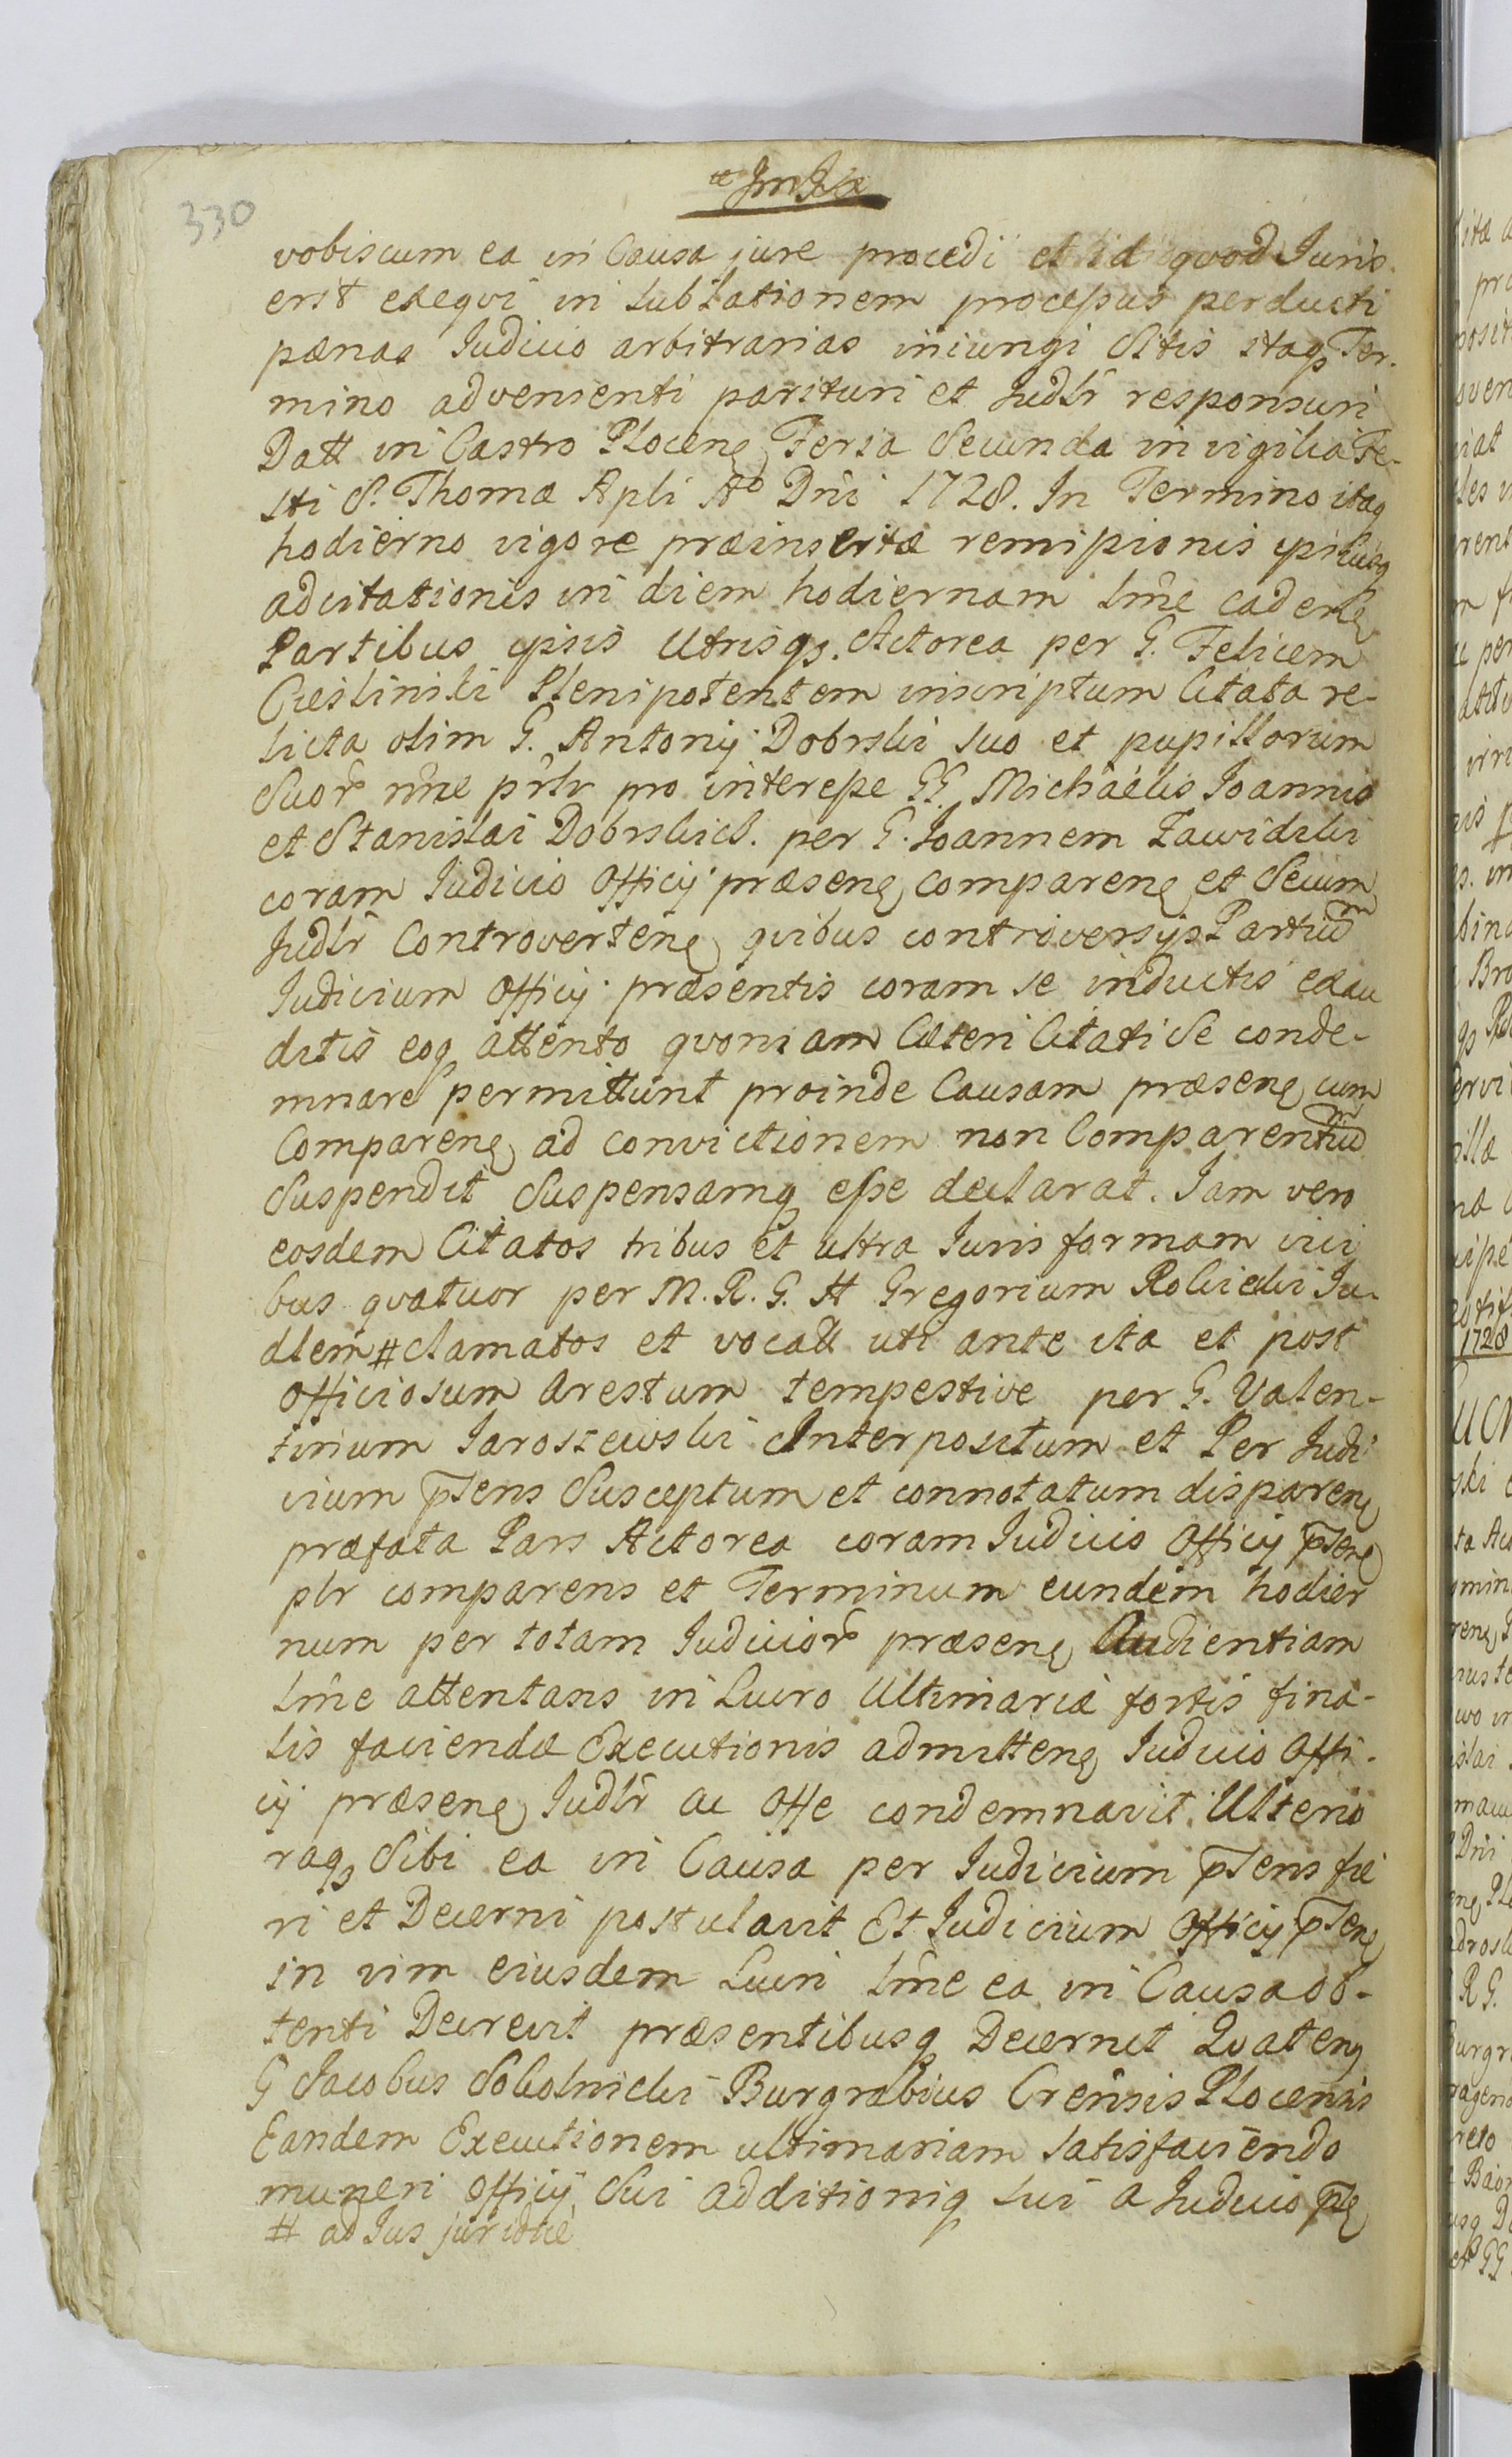 330
vobiscum ea in Causa jure procedi et id quod Juris
erit exeqvi in sublationem processus perducti
pænas Judicio arbitrarias iniungi Sitis itaqȝ Ter-
mino advenienti parituri et Judlr̃ responsuri
Datt in Castro Plocenѕ Feria Secunda in vigilia Fe-
sti S. Thomæ Apli Aº Dni 1728. In Termino itaq
hodierno vigore præinsertæ remissionis ipsiusq
adcitationis in diem hodiernam lm̃e caden
Partibus ipsis Utrisqȝ. Actorea per G. Felicem
Cieslinski Plenipotentem inscriptum Citata re-
licta olim G. Antonij Dobrski suo et pupillorum
Suor̃ nõie pr̃lr pro interesse GG Michaelis Joannis
et Stanislai Dobrskich. per G. Joannem Zawidzki
coram Judicio Officij præsen comparen et Secum
Judlr̃ Controverten qvibus controversijs Partium
Judicium Officij præsentis coram se inductis exau
ditis eoq attento qvoniam Cæteri Citati se conde-
mnare permittunt proinde Causam præsen cum
Comparen ad convictionem non Comparentium
Suspendit Suspensamq esse declarat. Jam vero
eosdem Citatos tribus et ultra Juris formam vici
bus qvatuor per M. R. G. H Gregorium Rokicki Ju-
dlem # clamatos et vocatt uti ante ita et post
Officiosum Arestum tempestive per G. Valen-
tinum Jaroszewski Interpositum et Per Judi
cium p̃sens Susceptum et connotatum disparen
præfata Pars Actorea coram Judicio Officij p̃sen
plr comparens et Terminum eundem hodier
num per totam Judicior̃ præsen Audientiam
lm̃e attentans in Lucro Ultimariæ fortis fina-
lis faciendæ Executionis admitten Judicio Offi-
cij præsen Judlr̃ ac Offe condemnavit. Ulterio
raqȝ Sibi ea in Causa per Judicium p̃sens fie
ri et Decerni postulavit Et Judicium Officij p̃sen
in vim eiusdem Lucri lm̃e ea in Causa ob-
tenti Decrevit præsentibusq Decernit Qvaten
G Jacobus Sokolnicki Burgrabius Cren̄sis Plocensis
Eandem Executionem ultimariam satisfaciendo
muneri Officij Sui additioniq sui a Judicio p̃s
# ad Jus juridice